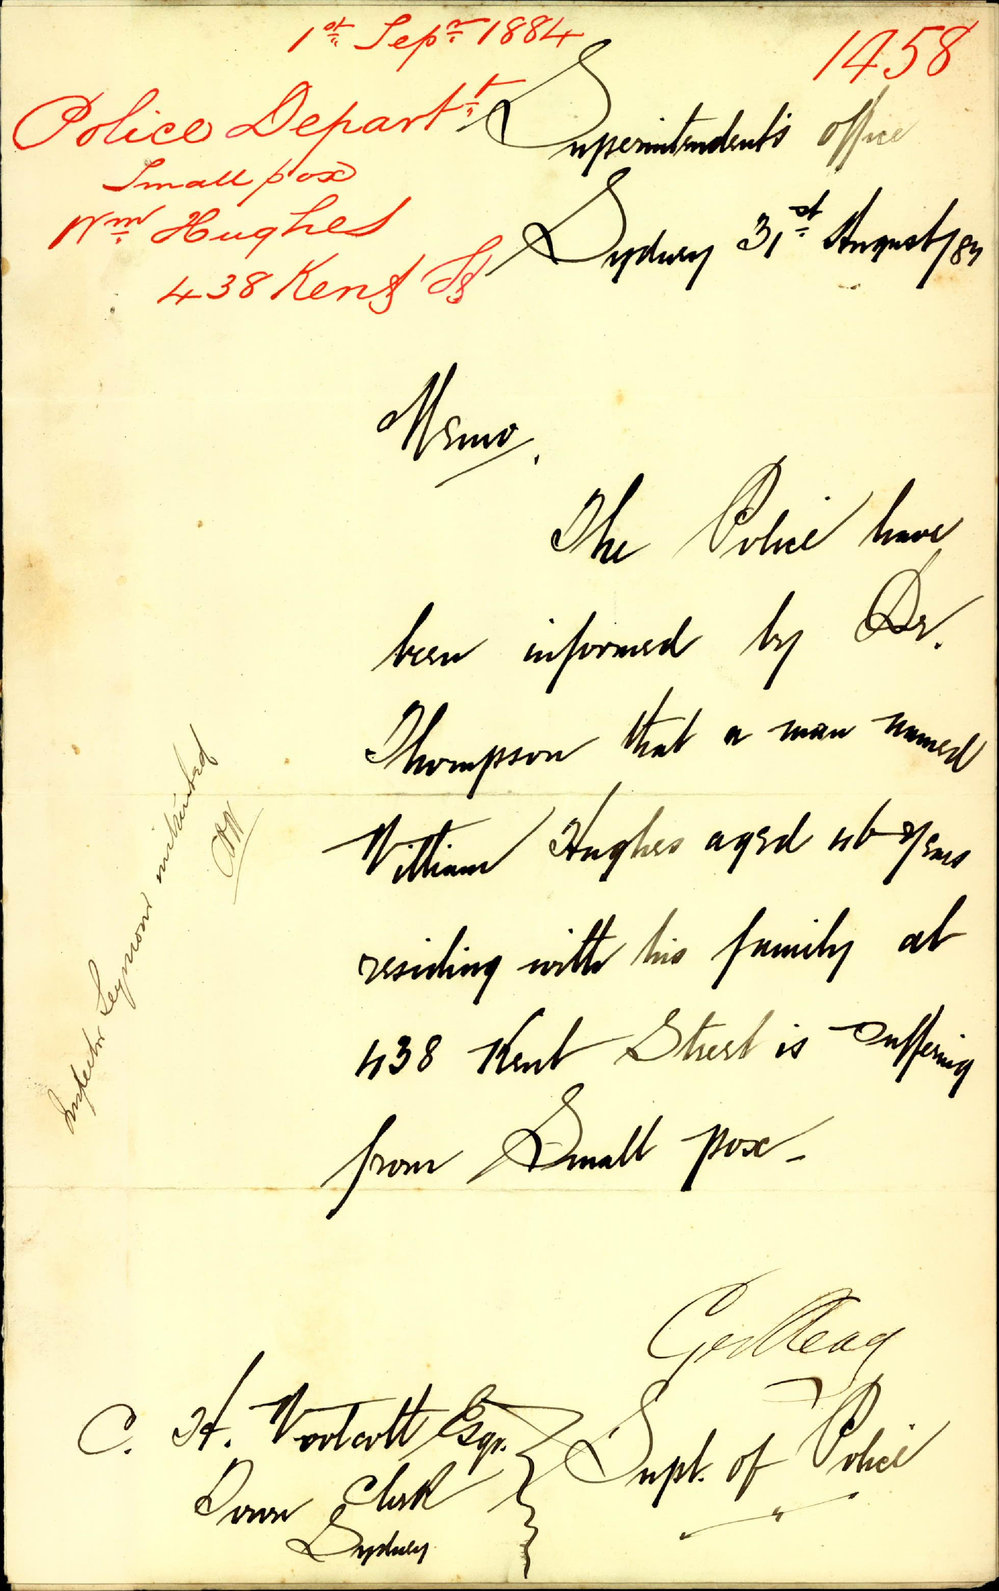 1st Sepr 1884
1458
Police Departt
Small pox
Wm Hughes
438 Kent St
Superintendent's office
Sydney 31st August/84
Memo.
The Police have
been informed by Dr.
Thompson that a man named
William Hughes aged 46 years
residing with his family at
438 Kent Street is suffering
from Small pox -
Inspector Seymour instructed
Geo Read
Supt. of Police
C. H. Woolcott Esqr.
Town Clerk
Sydney